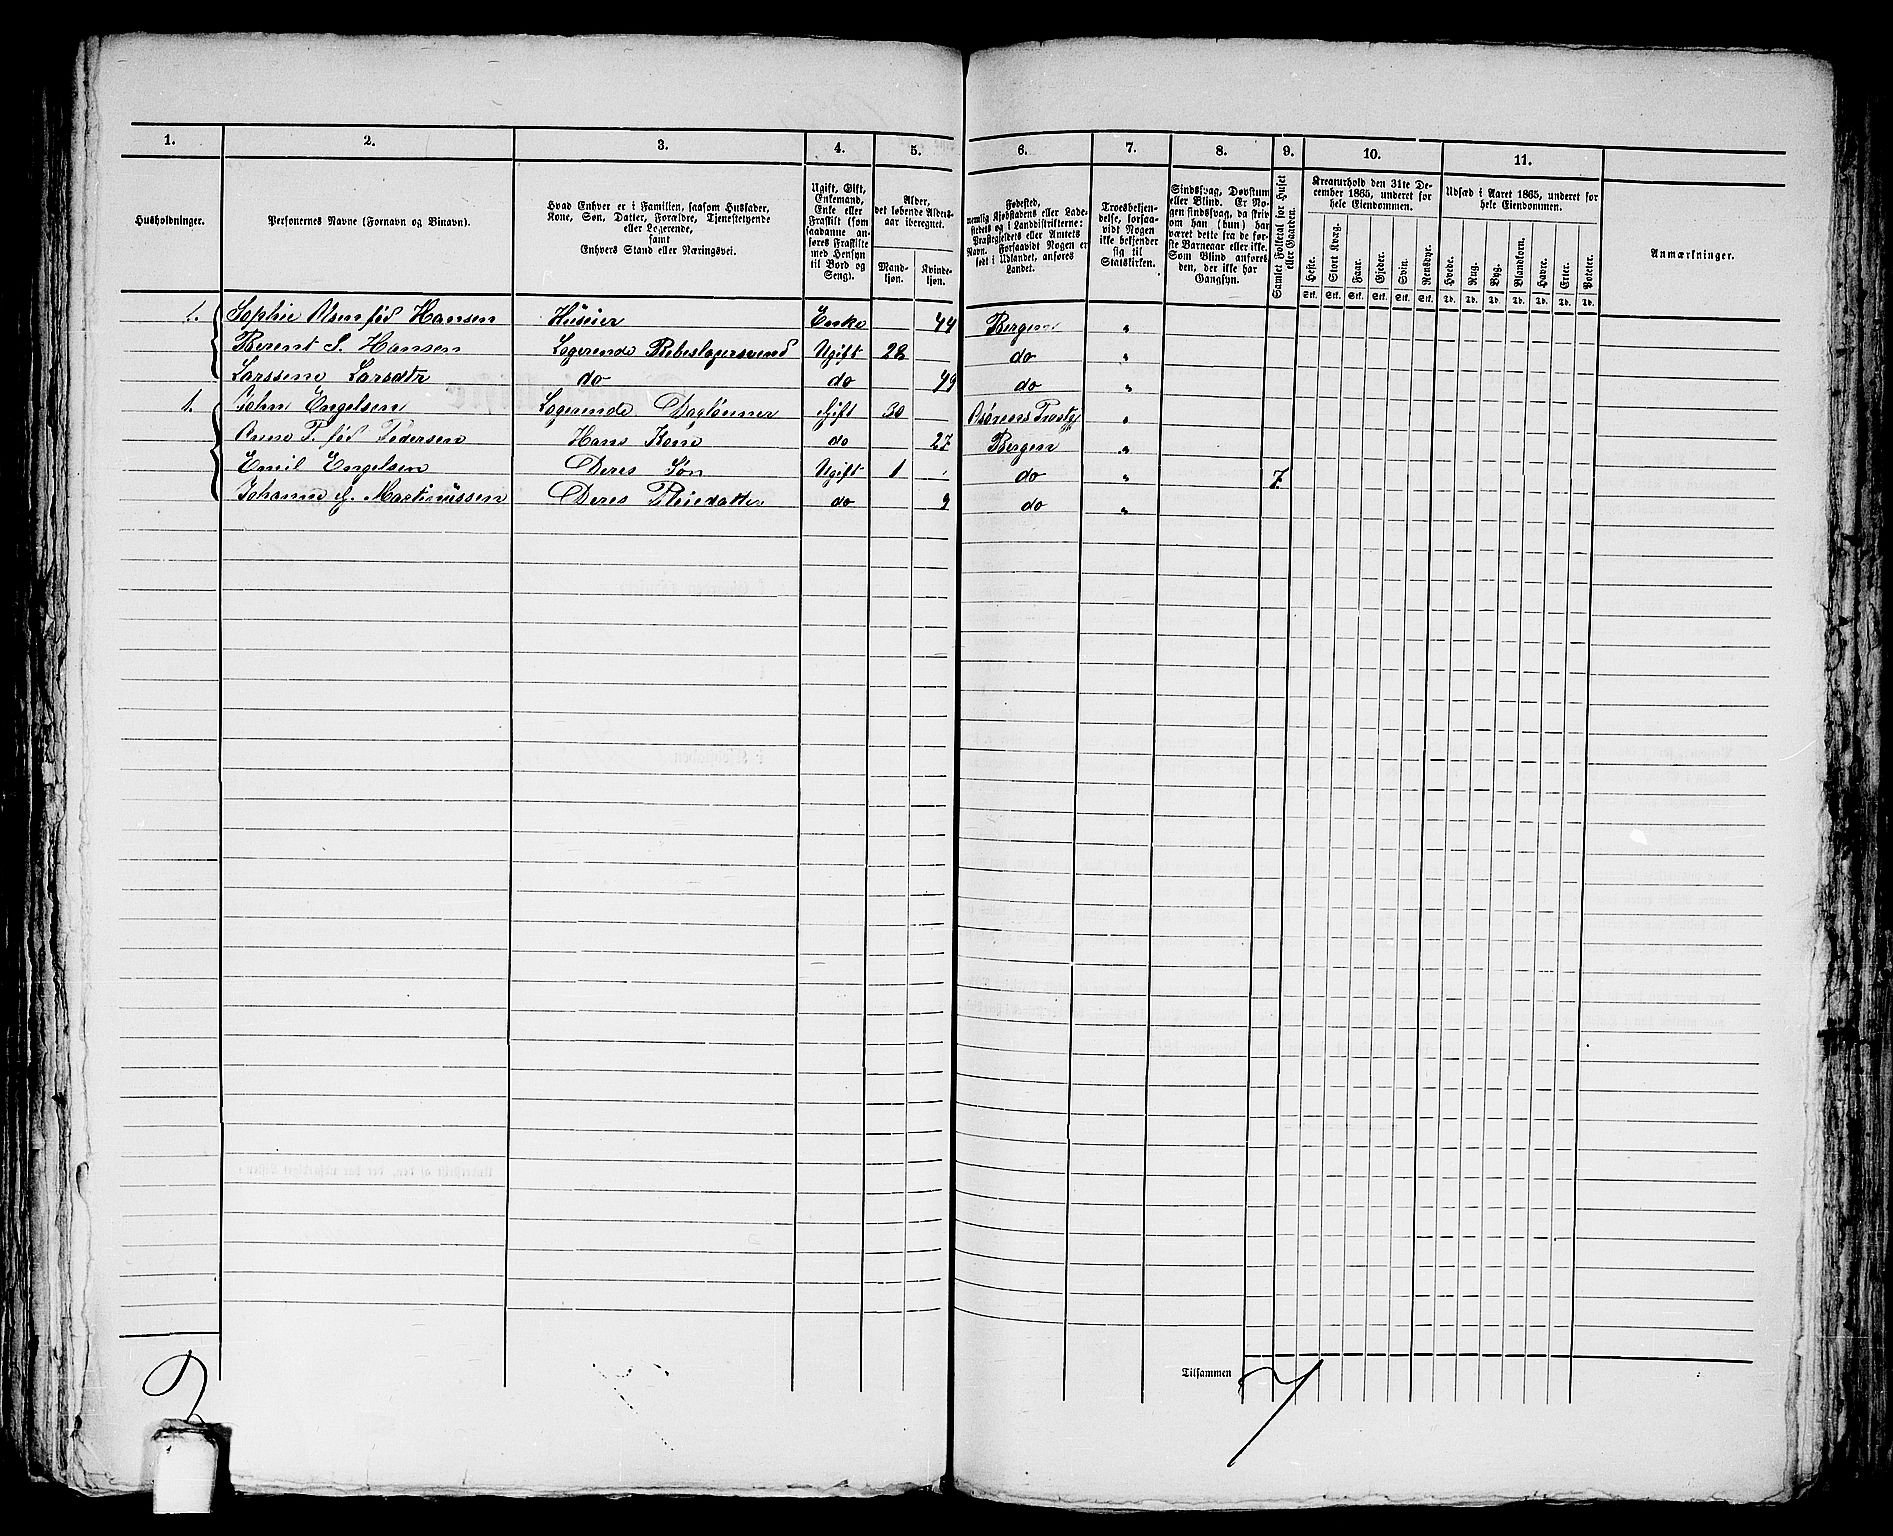 1. 2. 3. 4. 5. 6. 7. 8. 9. 10. 11.
Husholdninger.
Personernes Navne (Fornavn og Binavn).
Hvad Enhver er i Familien, saasom Husfader,
Kone, Søn, Datter, Forældre, Tjenestetyende
eller Logerende,
samt
Enhvers Stand eller Næringsvei.
Ugift, Gift,
Enkemand,
Enke eller
Fraskilt (som
saadanne an-
føres Fraskilte
med Hensyn
til Bord og
Seng).
Alder,
det løbende Alders-
aar iberegnet.
Mand-
kjøn.
Kvinde-
kjøn.
Fødested,
nemlig Kjøbstadens eller Lade-
stedets og i Landdistrikterne:
Præstegjeldets eller Amtets
Navn. Forsaavidt Nogen er
født i Udlandet, anføres
Landet.
Troesbekjen-
delse, forsaa-
vidt Nogen
ikke bekjender
sig til
Statskirken.
Sindssvag, Døvstum
eller Blind. Er No-
gen sindssvag, da skriv
om han (hun) har
været dette fra de før-
ste Barneaar eller ikke.
Som Blind anføres
den, der ikke har
Gangsyn.
Samlet Folketal for Huset
eller Gaarden.
Kreaturhold den 31te De-
cember 1865, underet for
hele Eiendommen.
Heste. Stort Kvæg. Faar. Gjeder. Svin. Rensdyr.
Stk. Stk. Stk. Stk. Stk. Stk.
Udsæd i Aaret 1865, underet for
hele Eiendommen.
Hvede. Rug. Byg. Blandkorn. Havre. Erter. Poteter.
Td. Td. Td. Td. Td. Td. Td.
Anmærkninger.
1. Sophie Olsen fød Hansen Huseier Enke 44 Bergen "
Berent S. Hansen Logerende Rebeslagersvend Ugift 28 do "
Larssine Larsdtr do do 49 do "
1. John Engelsen Logerende Daglønner Gift 30 "
Anne T. fød Pedersen Hans Kone do 27 Bergen "
Emil Engelsen Deres Søn Ugift 1 do " 7
Johanne G. Martinussen Deres Pleiedatter do 9 do "
2
Tilsammen 7